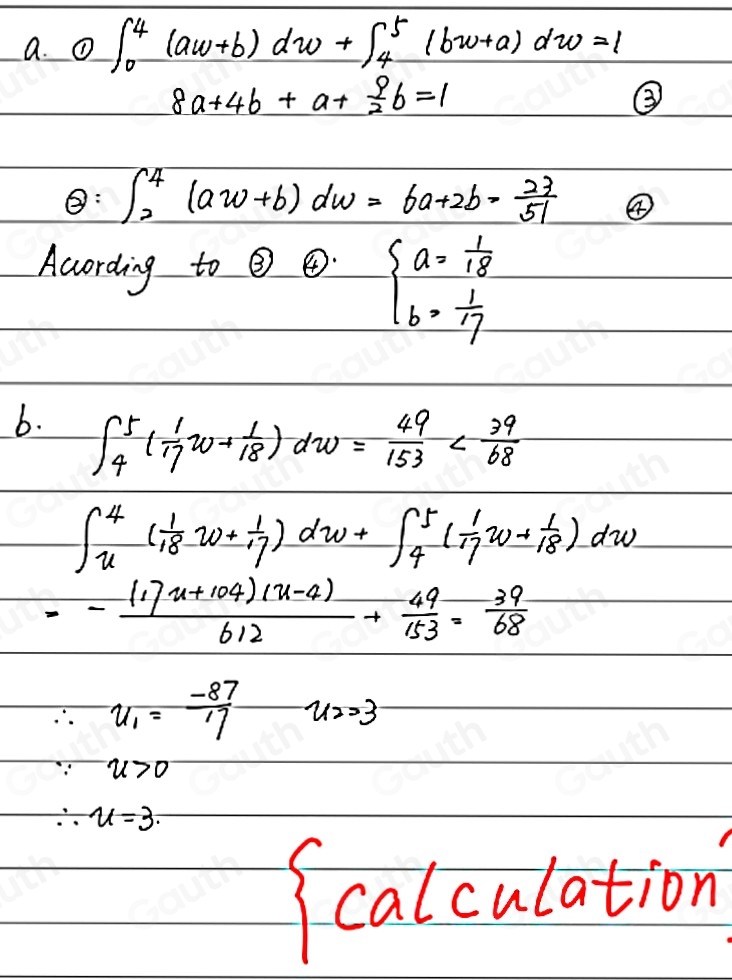 a. ① ∫₀⁴ (aw+b) dw + ∫₄⁵ (bw+a) dw = 1
8a+4b + a + 9/2 b = 1 ③
②: ∫₂⁴ (aw+b) dw = 6a+2b = 23/51 ④
According to ③ ④. { a = 1/18
b = 1/17
b. ∫₄⁵ (1/17 w + 1/18) dw = 49/153 < 39/68
∫ᵤ⁴ (1/18 w + 1/17) dw + ∫₄⁵ (1/17 w + 1/18) dw
= - (17u+104)(u-4)/612 + 49/153 = 39/68
∴ u₁ = -87/17 u₂=3
∵ u>0
∴ u=3.
{calculation